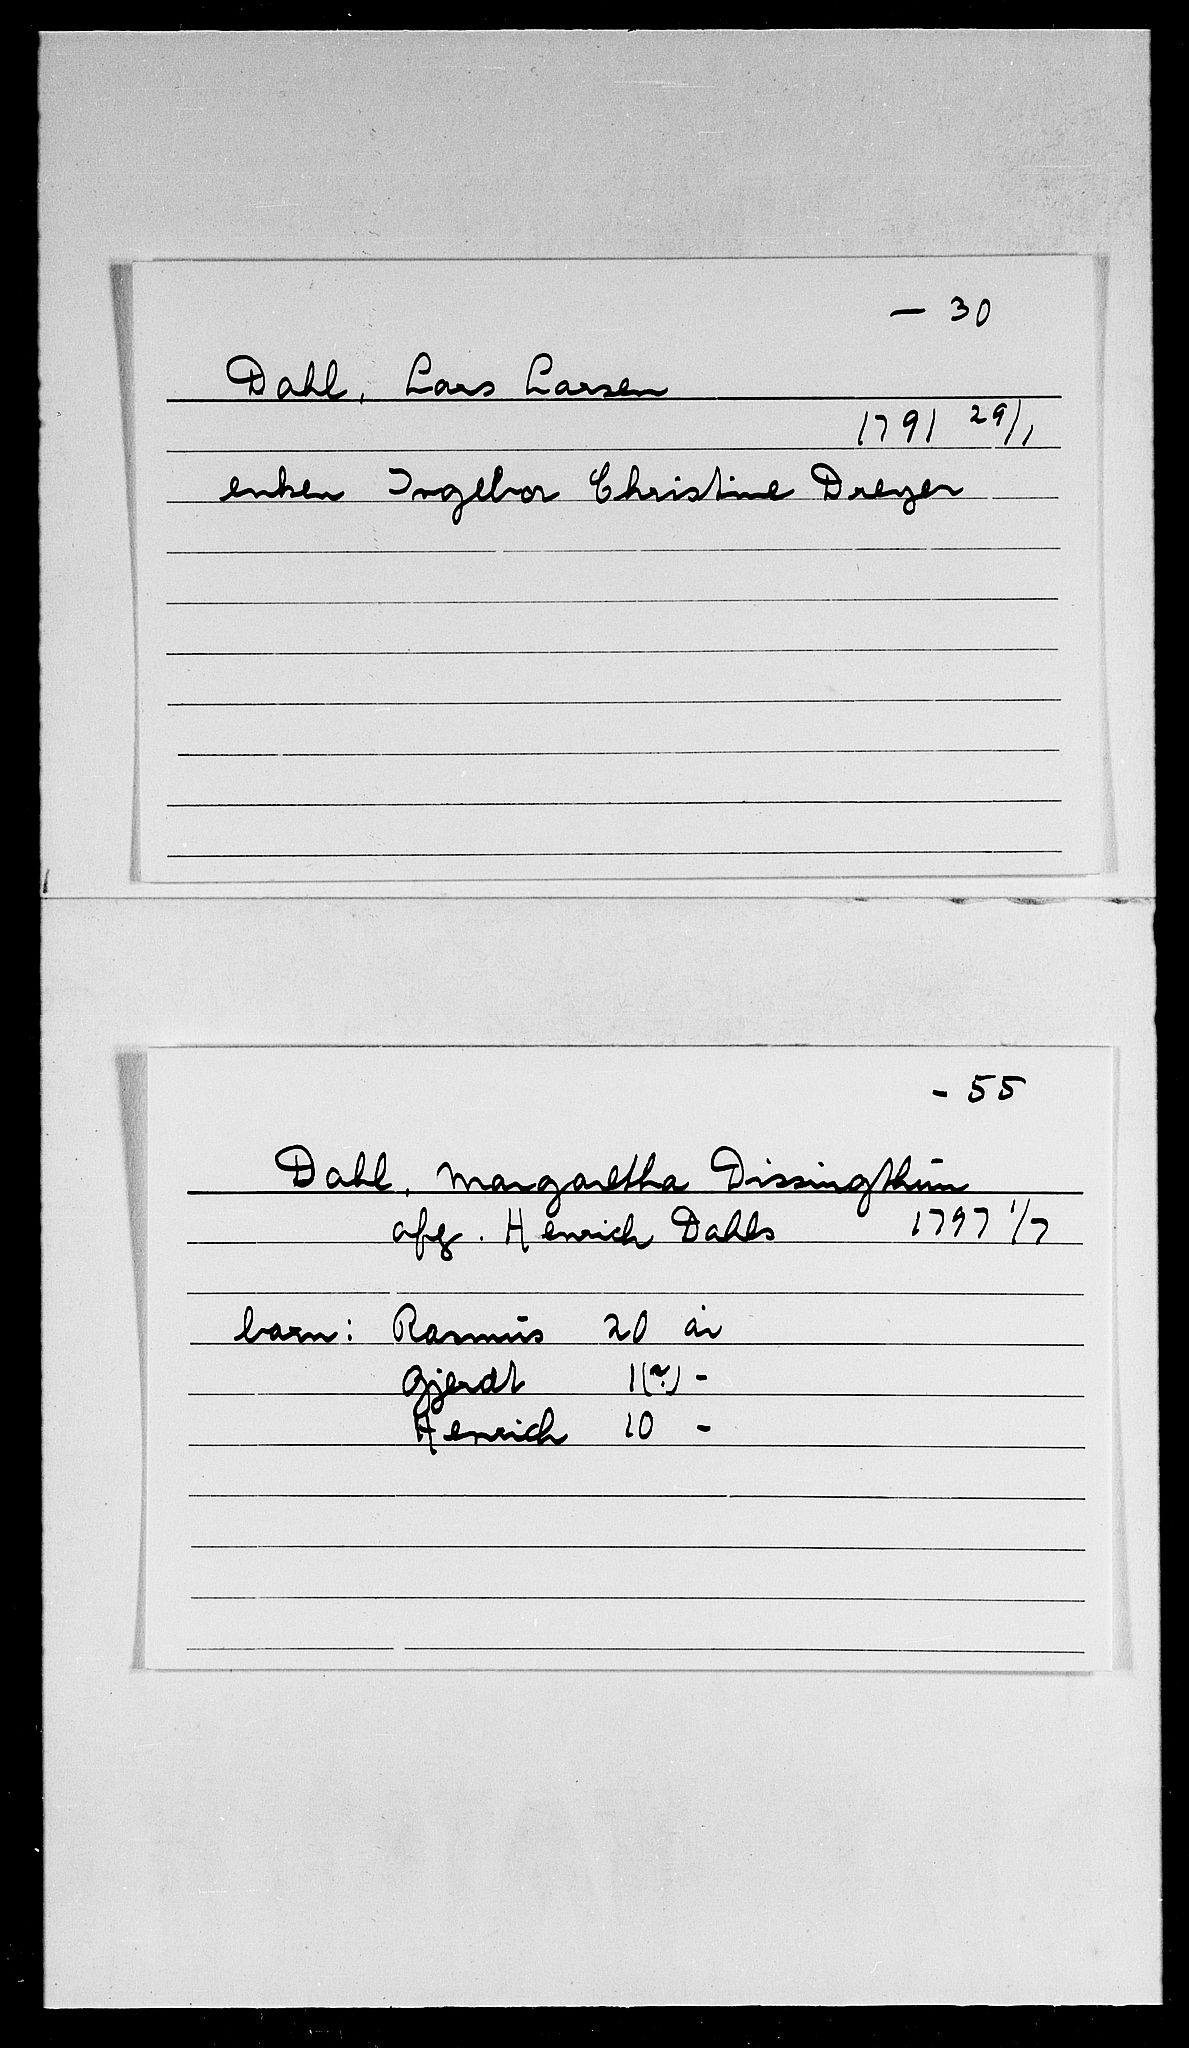 — 30
Dahl, Lars Larsen
1791 29/1
enken Ingebor Christine Dreyer
- 55
Dahl, Margaretha Dissingthun
afg. Henrich Dahls 1797 1/7
barn: Rasmus 20 år
Gjerdt 1(?) -
Henrich 10 -